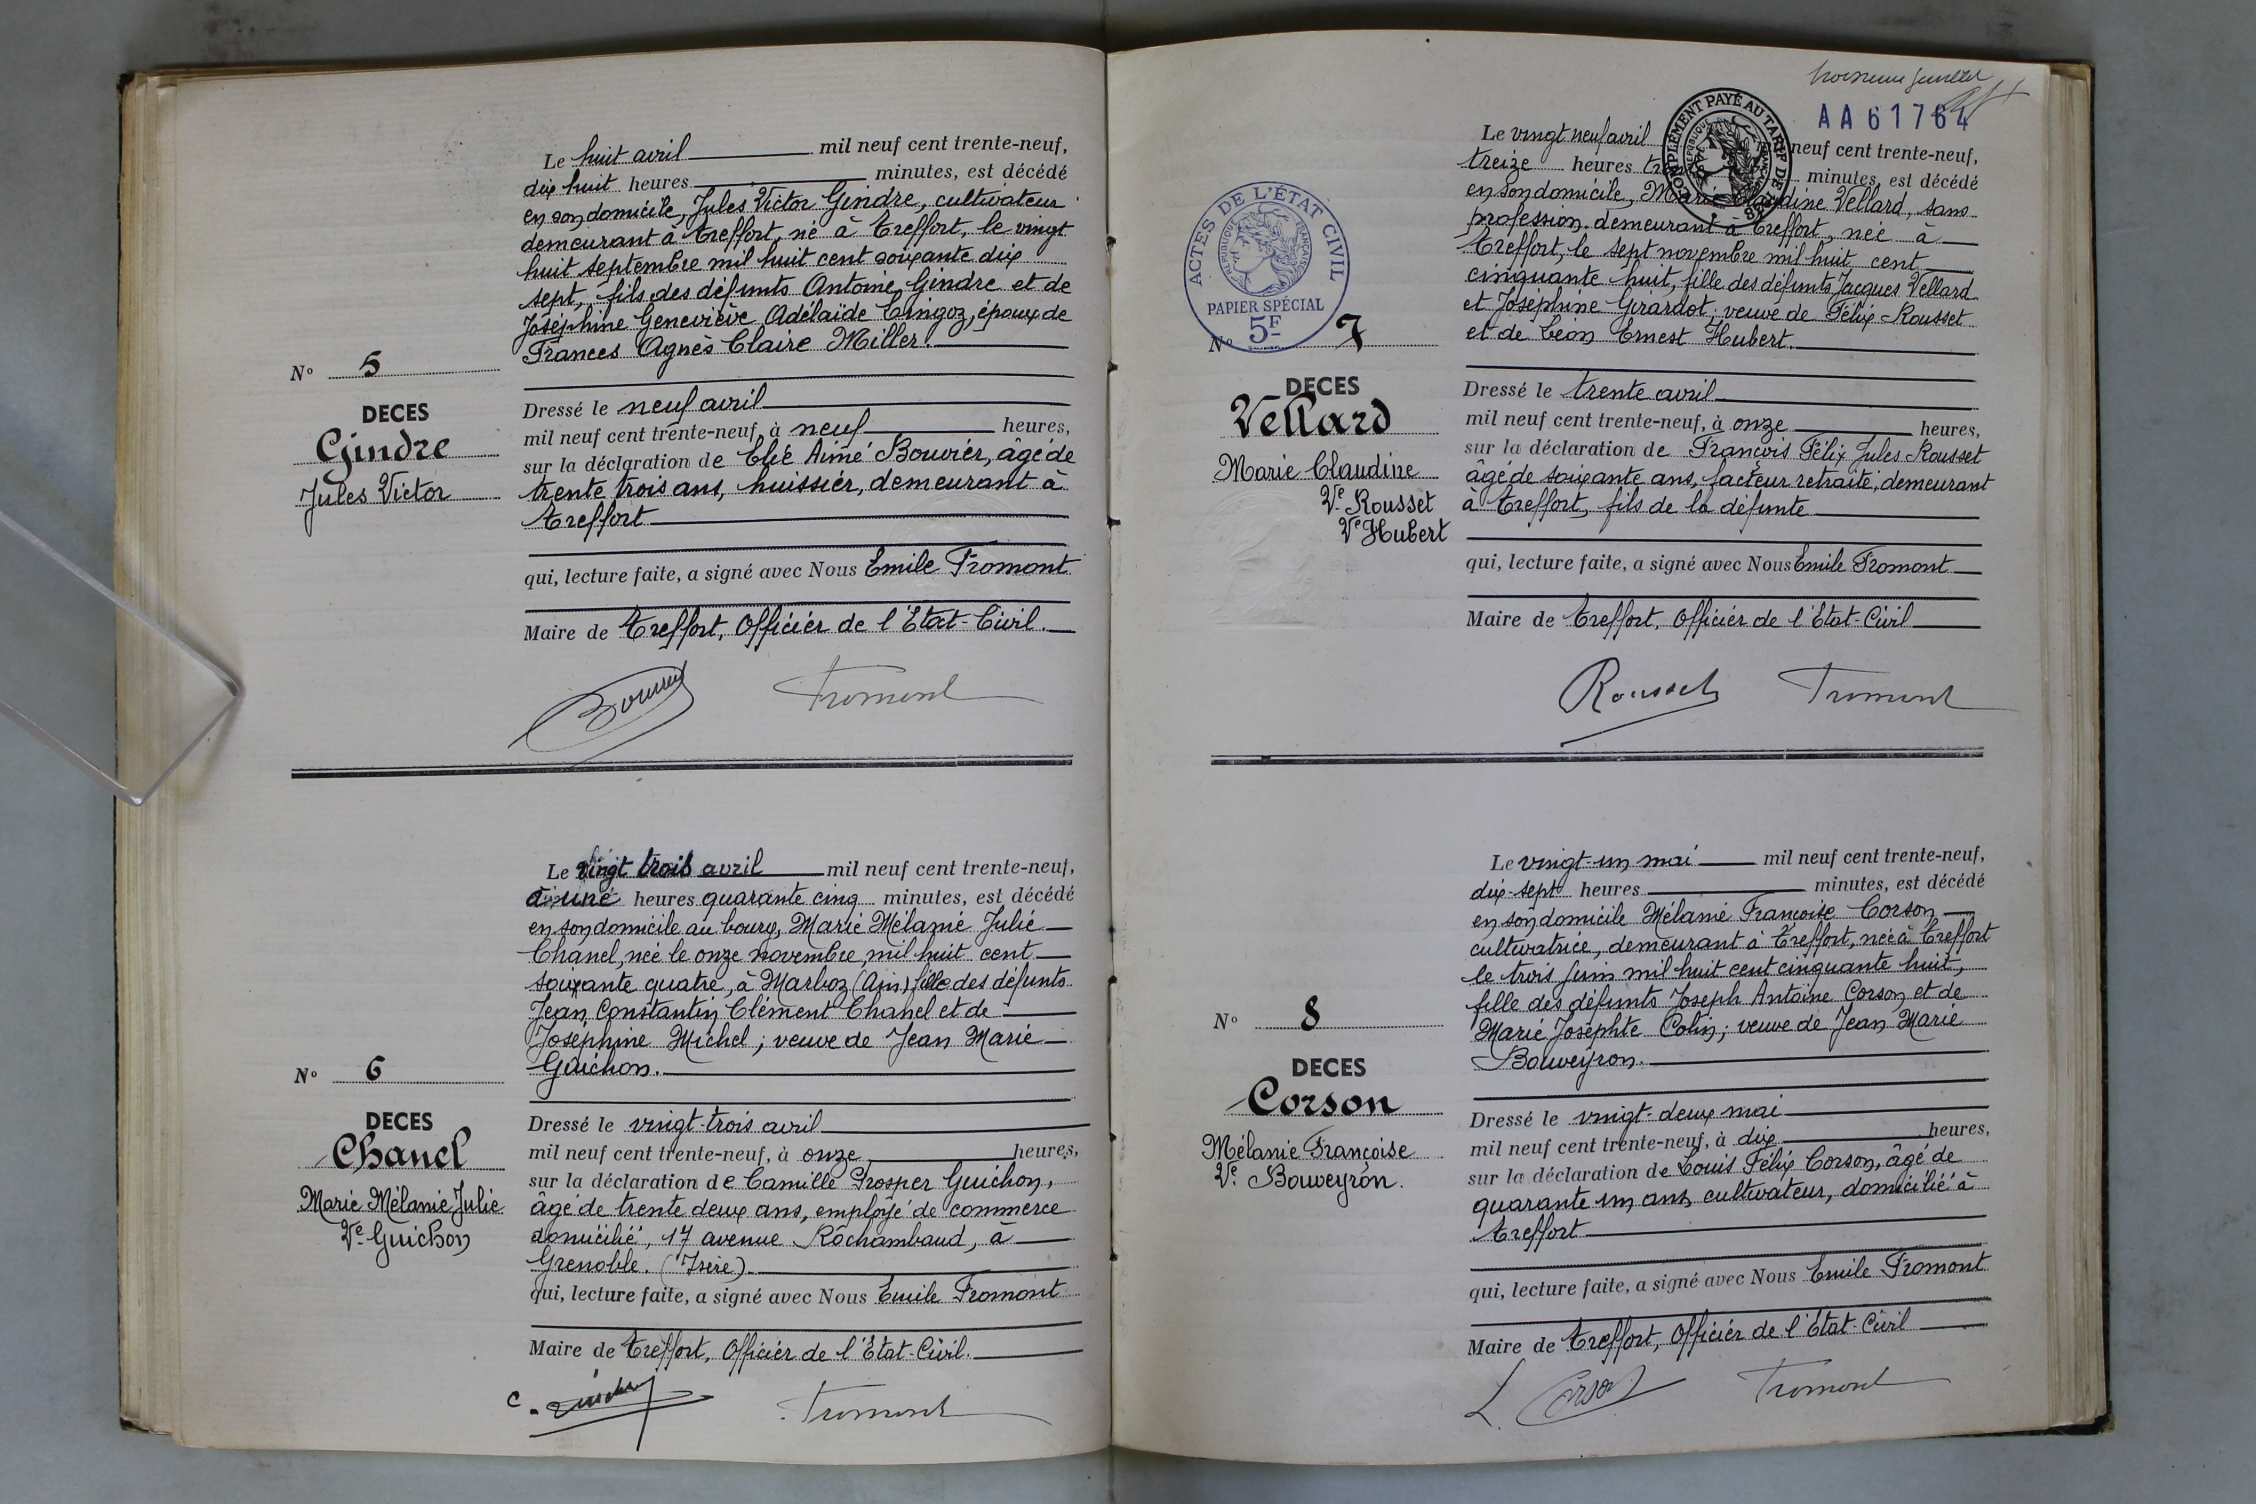 Le huit avril mil neuf cent trente-neuf,
dix huit heures minutes, est décédé
en son domicile, Jules Victor Gindre, cultivateur
demeurant à Treffort, né à Treffort, le vingt
huit septembre mil huit cent soixante dix
sept, fils des défunts Antoine Gindre et de
Joséphine Geneviève Adélaïde Cingoz, époux de
Frances Agnès Claire Miller.
N° 5
DECES
Gindre
Jules Victor
Dressé le neuf avril
mil neuf cent trente-neuf, à neuf heures,
sur la déclaration de Elie Aimé Bouvier, âgé de
trente trois ans, huissier, demeurant à
Treffort
qui, lecture faite, a signé avec Nous Emile Fromont
Maire de Treffort, Officier de l'Etat-Civil.
Fromont
Le vingt trois avril mil neuf cent trente-neuf,
à une heures quarante cinq minutes, est décédé
en son domicile au bourg, Marie Mélanie Julie
Chanel, née le onze novembre, mil huit cent
soixante quatre, à Marboz (Ain), fille des défunts
Jean Constantin Clément Chanel et de
Joséphine Michel ; veuve de Jean Marie
Guichon.
N° 6
DECES
Chanel
Marie Mélanie Julie
Ve Guichon
Dressé le vingt-trois avril
mil neuf cent trente-neuf, à onze heures,
sur la déclaration de Camille Prosper Guichon,
âgé de trente deux ans, employé de commerce
domicilié, 17 avenue Rochambaud, à
Grenoble. (Isère).
qui, lecture faite, a signé avec Nous Emile Fromont
Maire de Treffort, Officier de l'Etat-Civil.
C.
Fromont
AA61764
COMPLÉMENT PAYÉ AU TARIF DE 1938
ACTES DE L'ÉTAT CIVIL
RÉPUBLIQUE FRANÇAISE
PAPIER SPÉCIAL
5F
Le vingt neuf avril neuf cent trente-neuf,
treize heures minutes, est décédé
en son domicile, Marie Claudine Vellard, sans
profession, demeurant à Treffort, née à
Treffort, le sept novembre mil huit cent
cinquante huit, fille des défunts Jacques Vellard
et Joséphine Girardot ; veuve de Félix Rousset
et de Léon Ernest Hubert.
N° 7
DECES
Vellard
Marie Claudine
Ve Rousset
Ve Hubert
Dressé le trente avril
mil neuf cent trente-neuf, à onze heures,
sur la déclaration de François Félix Jules Rousset
âgé de soixante ans, facteur retraité, demeurant
à Treffort, fils de la défunte
qui, lecture faite, a signé avec Nous Emile Fromont
Maire de Treffort, Officier de l'Etat-Civil
Rousset Fromont
Le vingt-un mai mil neuf cent trente-neuf,
dix-sept heures minutes, est décédé
en son domicile Mélanie Françoise Corson
cultivatrice, demeurant à Treffort, née à Treffort
le trois juin mil huit cent cinquante huit,
fille des défunts Joseph Antoine Corson et de
Marie Josephte Colin ; veuve de Jean Marie
Bouveyron.
N° 8
DECES
Corson
Mélanie Françoise
Ve Bouveyron.
Dressé le vingt-deux mai
mil neuf cent trente-neuf, à dix heures,
sur la déclaration de Louis Félix Corson, âgé de
quarante un ans, cultivateur, domicilié à
Treffort
qui, lecture faite, a signé avec Nous Emile Fromont
Maire de Treffort, Officier de l'Etat-Civil
L. Corson Fromont